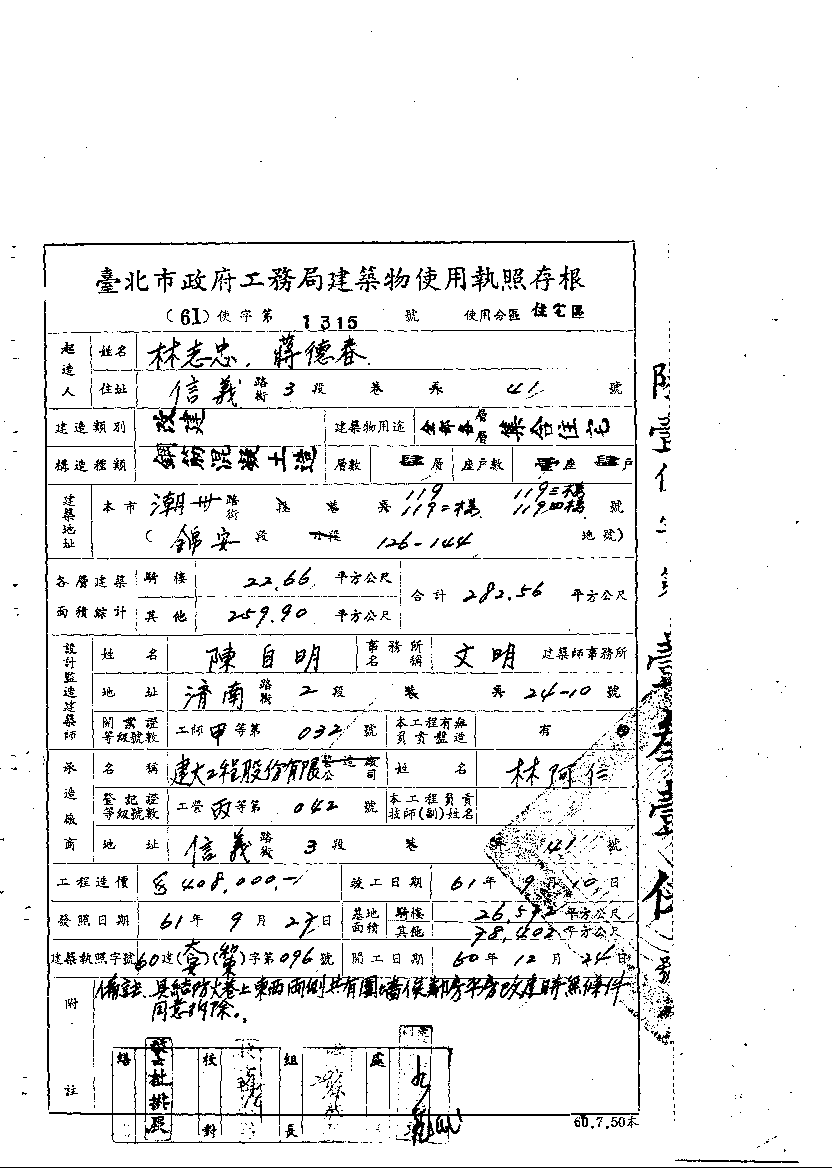 臺北市政府工務局建築物使用執照存根
(61)使字第 1315 號 使用分區 住宅區
起造人 姓名 林志忠、蔣德春
住址 信義路街 3 段 巷 弄 41 號
建造類別 改建 建築物用途 全部各層層集合住宅
構造種類 鋼筋混凝土造 層數 肆層 座戶數 壹座 肆戶
建築地址 本市 潮州路街 段 巷 弄 119 119二樓 119三樓 119四樓 號
(錦安 段 小段 126-144 地號)
各層建築面積綜計 騎樓 22.66 平方公尺 合計 282.56 平方公尺
其他 259.90 平方公尺
設計監造建築師 姓名 陳自明 事務所名稱 文明 建築師事務所
地址 濟南路街 2 段 巷 弄 24-10 號
開業證等級號數 工師甲等第 032 號 本工程有無負責監造 有
承造廠商 名稱 建大工程股份有限營造廠公司 姓名 林阿仁
登記證等級號數 工營丙等第 042 號 本工程負責技師(副)姓名
地址 信義路街 3 段 巷 弄 41 號
工程造價 408,000.- 竣工日期 61年 9月 10日
發照日期 61年 9月 27日 基地面積 騎樓 26.592 平方公尺
其他 78.402 平方公尺
建築執照字號 60建( )( )字第096號 開工日期 60年 12月 24日
附註 備註 具結防火巷上東西兩側共有圍墻俟鄰房平房改建時無條件
同意拆除。
繕 校對 組長 處
60.7.50本